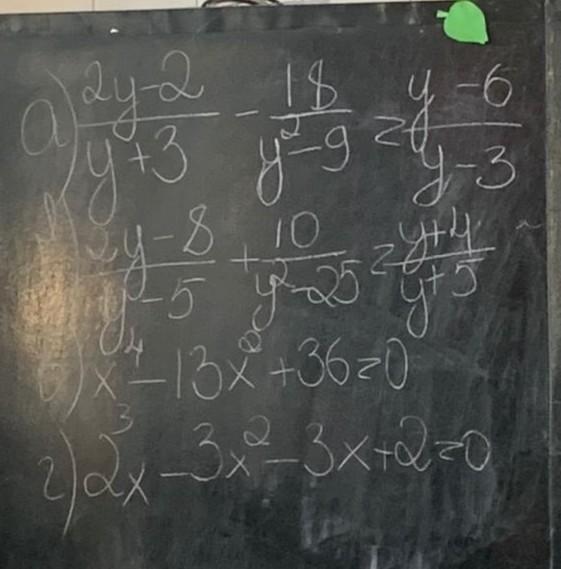 а) (2y-2)/(y+3) - 18/(y²-9) = (y-6)/(y-3)
(2y-8)/(y-5) + 10/(y²-25) = (y+4)/(y+5)
x⁴-13x²+36=0
г) 2x³-3x²-3x+2=0